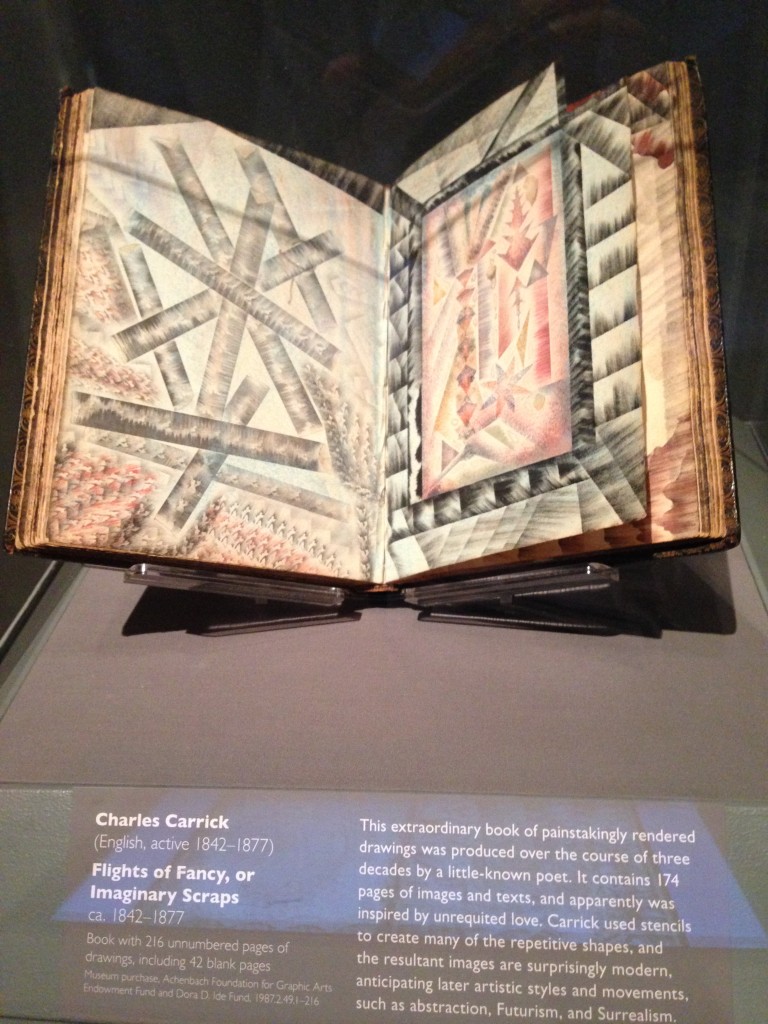 Charles Carrick
(English, active 1842–1877)
Flights of Fancy, or
Imaginary Scraps
ca. 1842–1877
Book with 216 unnumbered pages of
drawings, including 42 blank pages
Museum purchase, Achenbach Foundation for Graphic Arts
Endowment Fund and Dora D. Ide Fund, 1987.2.49.1–216
This extraordinary book of painstakingly rendered
drawings was produced over the course of three
decades by a little-known poet. It contains 174
pages of images and texts, and apparently was
inspired by unrequited love. Carrick used stencils
to create many of the repetitive shapes, and
the resultant images are surprisingly modern,
anticipating later artistic styles and movements,
such as abstraction, Futurism, and Surrealism.